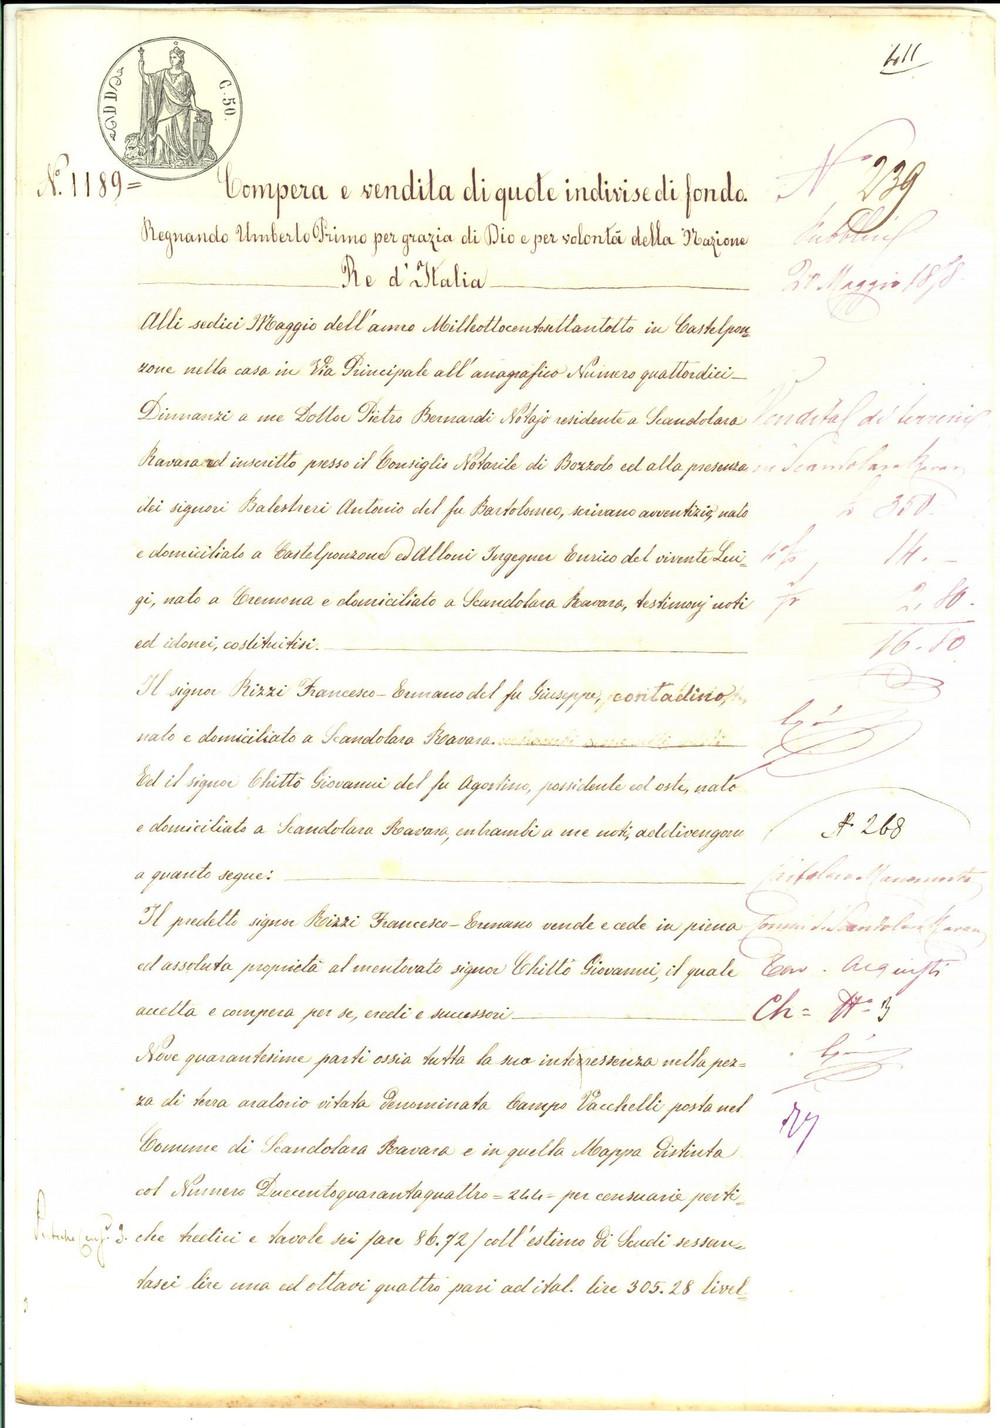 411
DD
C. 50.
N.º 1189=
Compera e vendita di quote indivise di fondo.
Regnando Umberto Primo per grazia di Dio e per volontà della Nazione
Re d'Italia
Alli sedici Maggio dell'anno Milleottocentosettantotto in Castelpon=
zone nella casa in Via Principale all'anagrafico Numero quattordici
Dinnanzi a me Dottor Pietro Bernardi Notajo residente a Scandolara
Ravara ed inscritto presso il Consiglio Notarile di Bozzolo ed alla presenza
dei signori Balestreri Antonio del fu Bartolomeo, scrivano avventizio, nato
e domiciliato a Castelponzone ed Alloni Ingegner Enrico del vivente Lui=
gi, nato a Cremona e domiciliato a Scandolara Ravara, testimonj noti
ed idonei, costituitisi.
Il signor Rizzi Francesco-Ermano del fu Giuseppe, contadino,
nato e domiciliato a Scandolara Ravara.
Ed il signor Chittò Giovanni del fu Agostino, possidente ed oste, nato
e domiciliato a Scandolara Ravara, entrambi a me noti, addivengono
a quanto segue:
Il predetto signor Rizzi Francesco-Ermano vende e cede in piena
ed assoluta proprietà al mentovato signor Chittò Giovanni, il quale
accetta e compera per se, eredi e successori
Nove quarantesime parti ossia tutta la sua interessenza nella pez=
za di terra aratorio vitata denominata Campo Vacchelli posta nel
Comune di Scandolara Ravara e in quella Mappa distinta
col Numero Duecentoquarantaquattro = 244 = per censuarie perti=
che tredici e tavole sei pare 86.72 / coll'estimo di Scudi sessan=
tasei lire una ed ottavi quattro pari ad ital. lire 305.28 livel=
Nº 239
20 Maggio 1878
Vendita di terreni
in Scandolara Ravara
L 350.
14. -
2, 80.
16.80
Nº 268
Comune di Scandolara Ravara
Acquisti
Ch = Nº 3